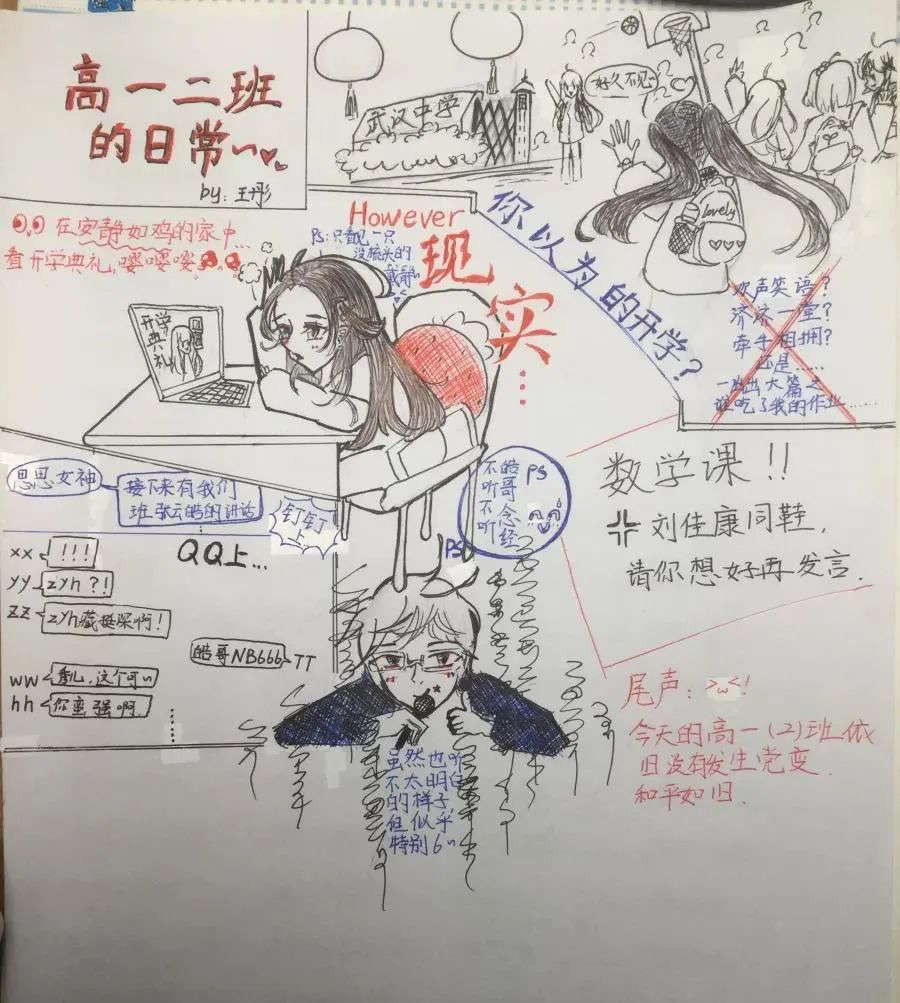 高一二班
的日常~
by:王彤
武汉中学
好久不见~
lovely
你以为的开学?
欢声笑语?
济济一堂?
牵手相拥?
还是……
一出出大篇之
谁吃了我的作业……
However
现实…
PS:只看见一只
没梳头的
戴静~
在安静如鸡的家中…
看开学典礼,嘤嘤嘤
开学
典礼
思思女神
接下来有我们
班张云皓的讲话
钉钉
上
QQ上…
xx !!!
yy zyh?!
zz zyh藏挺深啊!
皓哥NB666 TT
ww 秀儿,这个可~
hh 你蛮强啊.
PS
皓哥念经
不听不听
PS
虽然也听
不太明白
的样子,
但似乎
特别6~
数学课!!
刘佳康同鞋,
请你想好再发言.
尾声: >ω<!
今天的高一(2)班依
旧没有发生党变
和平如旧.